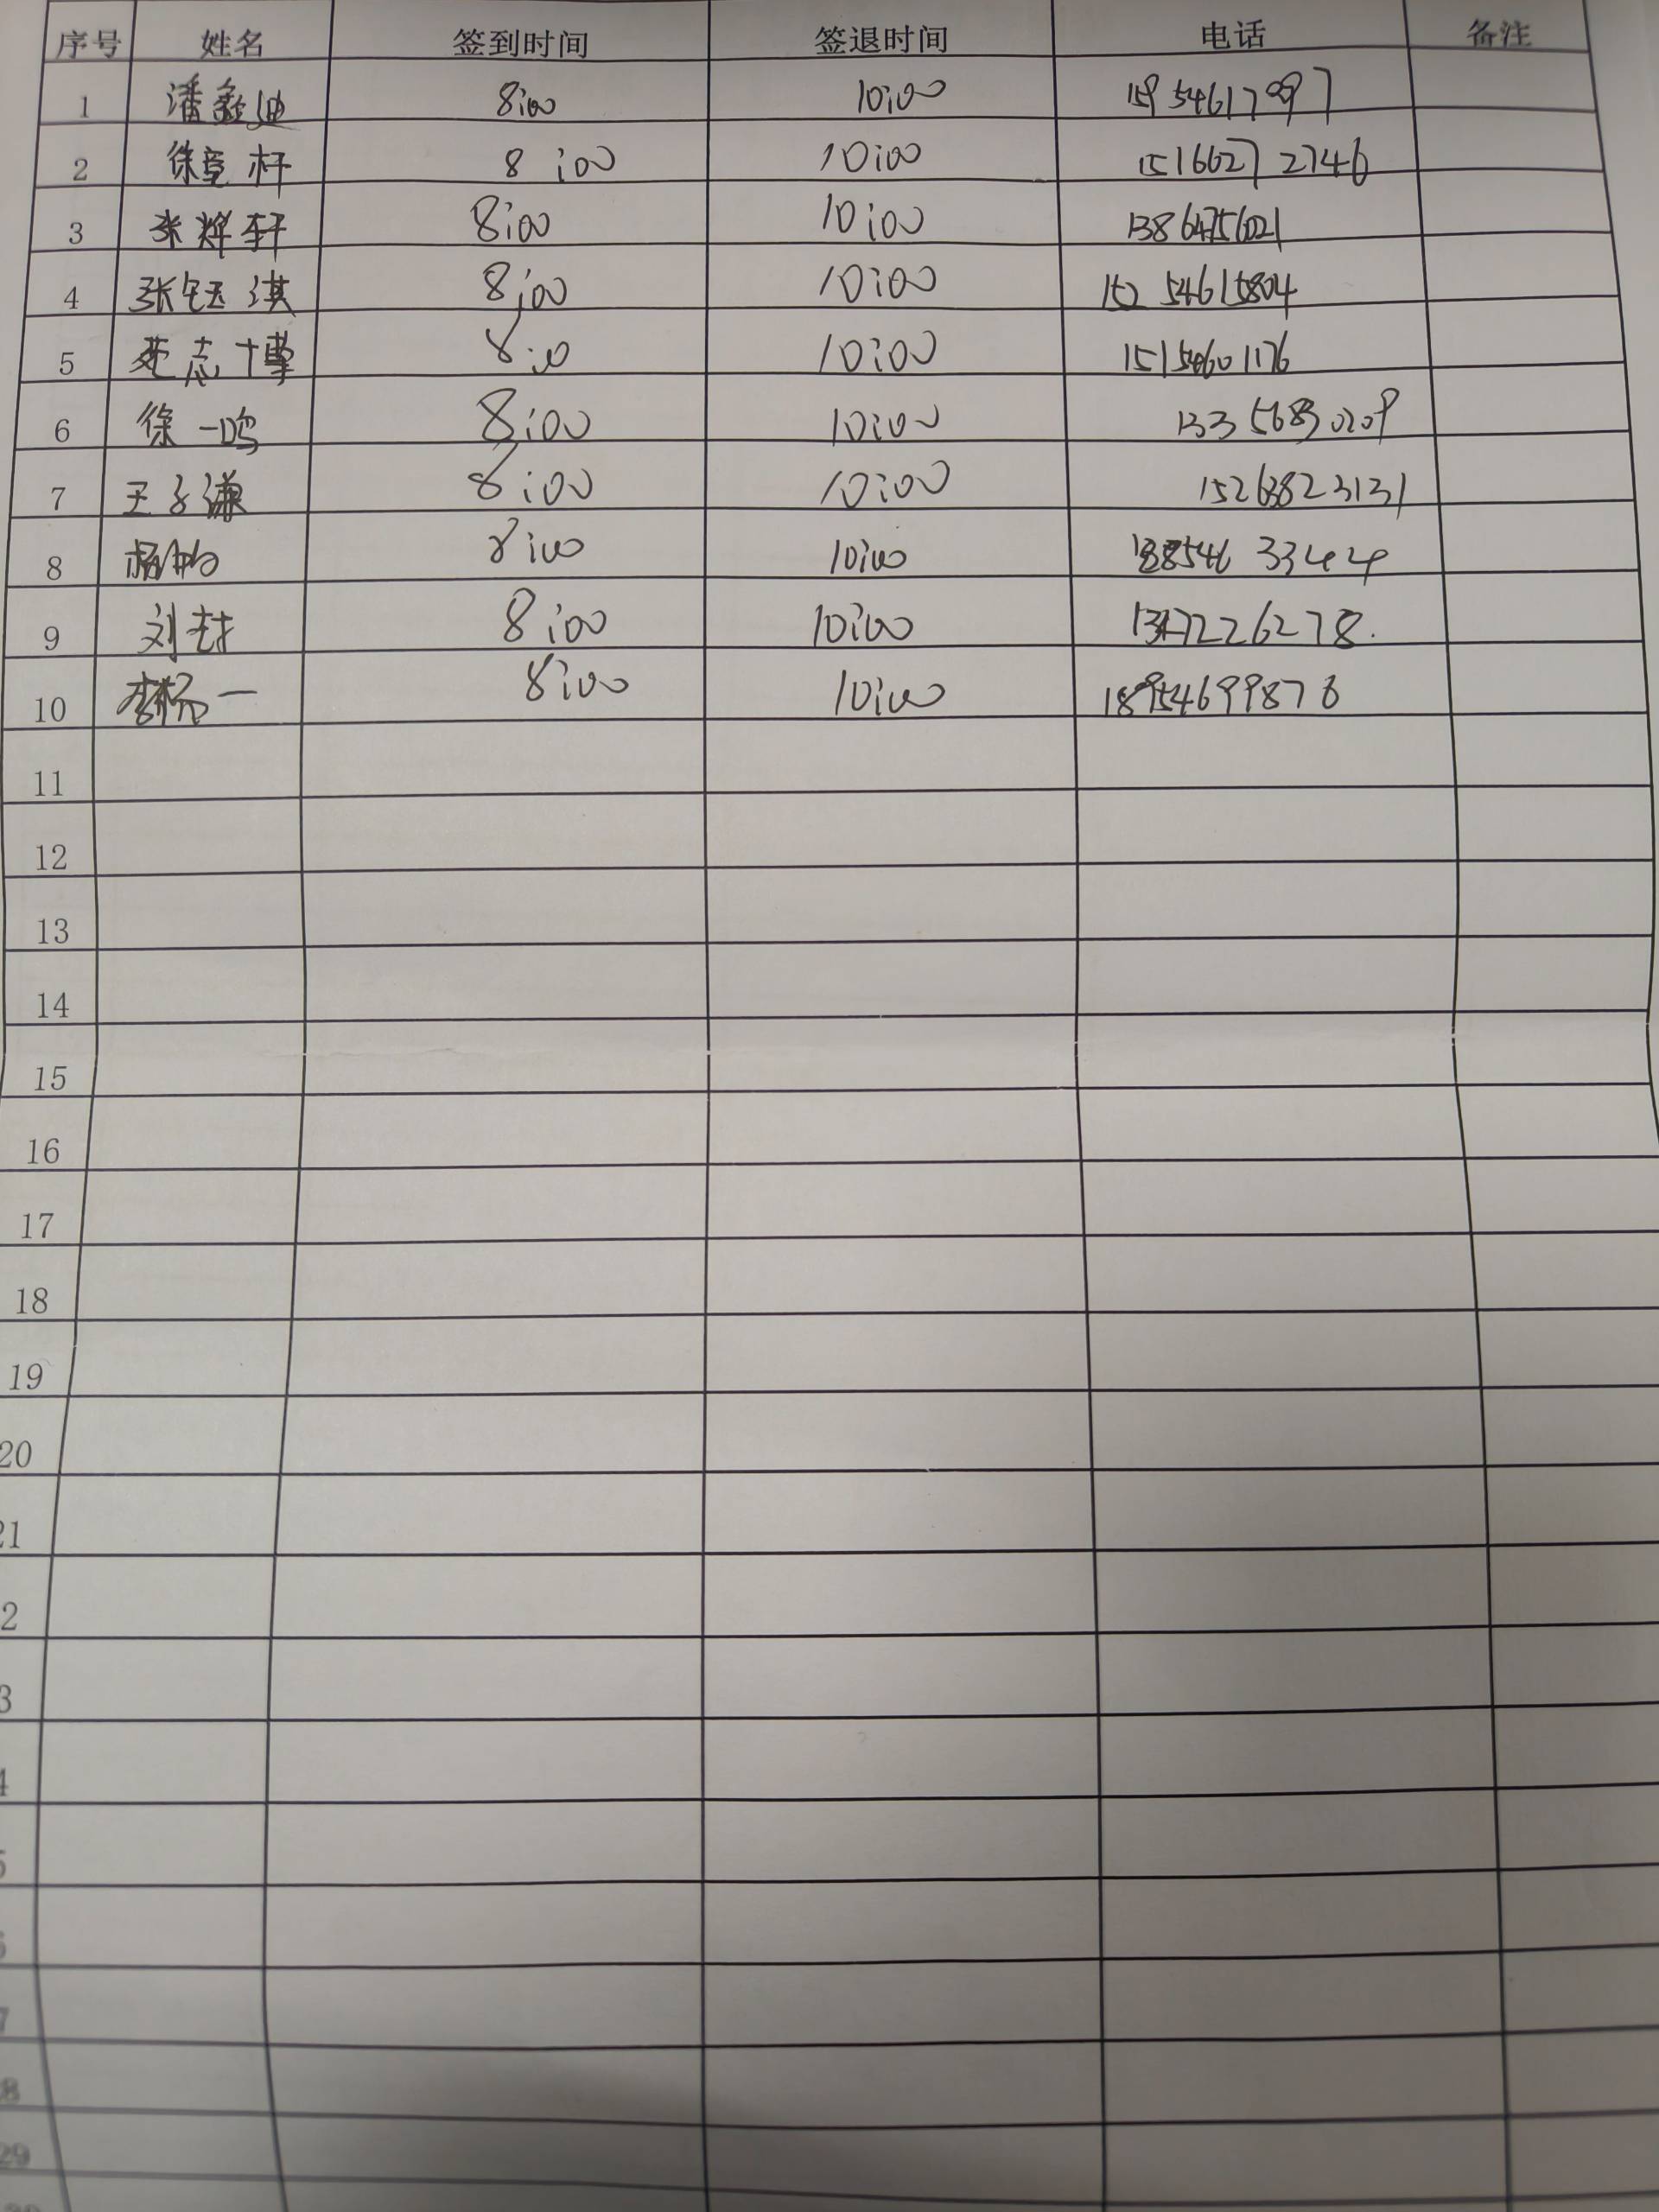 序号 姓名 签到时间 签退时间 电话 备注
1 潘鑫迪 8:00 10:00 15954617997
2 徐竟杆 8:00 10:00 15166272746
3 张烨轩 8:00 10:00
4 张钰淇 8:00 10:00 15254615804
5 志博 8:00 10:00 15154601176
6 徐一鸣 8:00 10:00 13356830209
7 王子谦 8:00 10:00 15263823131
8 8:00 10:00
9 刘 8:00 10:00
10 李 一 8:00 10:00 18954699876
11
12
13
14
15
16
17
18
19
20
21
2
3
4
5
6
7
8
29